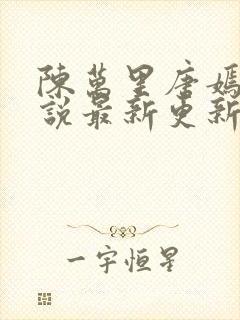 陳萬里唐嫣
說最新更新
一宇恒星